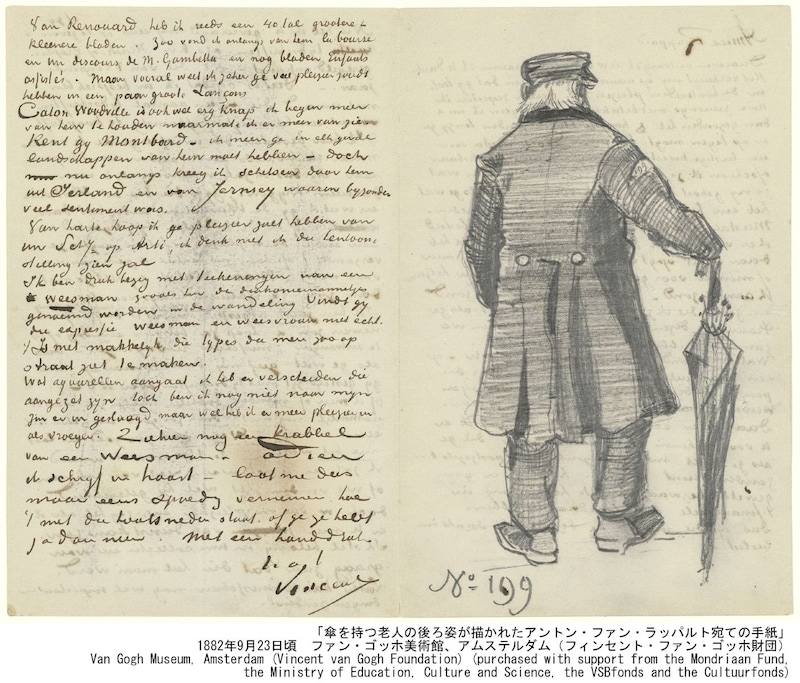 Van Renouard heb ik reeds een 40 tal grootere &
kleinere bladen. Zoo vond ik onlangs van hem la bourse
en un discours de M. Gambetta en nog bladen Enfants
assistés. Maar vooral weet ik zeker ge veel pleizier zoudt
hebben in een paar groote Lançons
Caton Woodville is ook wel erg knap ik begin meer
van hem te houden naarmate ik er meer van zie.
Kent gij Montbard – ik meen ge in elk geval
landschappen van hem moet hebben – doch
nu onlangs kreeg ik schetsen door hem
uit Ierland en van Jersey waarin byzonder
veel sentiment was.
Van harte hoop ik ge pleizier zult hebben van
uw op Arti, ik denk niet ik die tentoon-
stelling zien zal
Ik ben druk bezig met teekeningen van een
weesman zooals hier de diakoniemannetjes
genoemd worden in de wandeling vindt gij
die expressie weesman en weesvrouw niet echt.
't Is niet makkelyk, die types die men zoo op
straat ziet te maken.
Wat aquarellen aangaat ik heb er verscheiden die
aangezet zyn toch ben ik nog niet naar myn
zin er in geslaagd maar wel heb ik er meer pleizier in
als vroeger. Ziehier nog een krabbel
van een weesman. adieu
ik schrijf in haast – laat me dus
maar eens spoedig vernemen hoe
't met die houtsneden staat, of ge ze hebt
ja dan neen. Met een handdruk
t. à t
Vincent
No 199
「傘を持つ老人の後ろ姿が描かれたアントン・ファン・ラッパルト宛ての手紙」
1882年9月23日頃 ファン・ゴッホ美術館、アムステルダム（フィンセント・ファン・ゴッホ財団）
Van Gogh Museum, Amsterdam (Vincent van Gogh Foundation) (purchased with support from the Mondriaan Fund,
the Ministry of Education, Culture and Science, the VSBfonds and the Cultuurfonds)